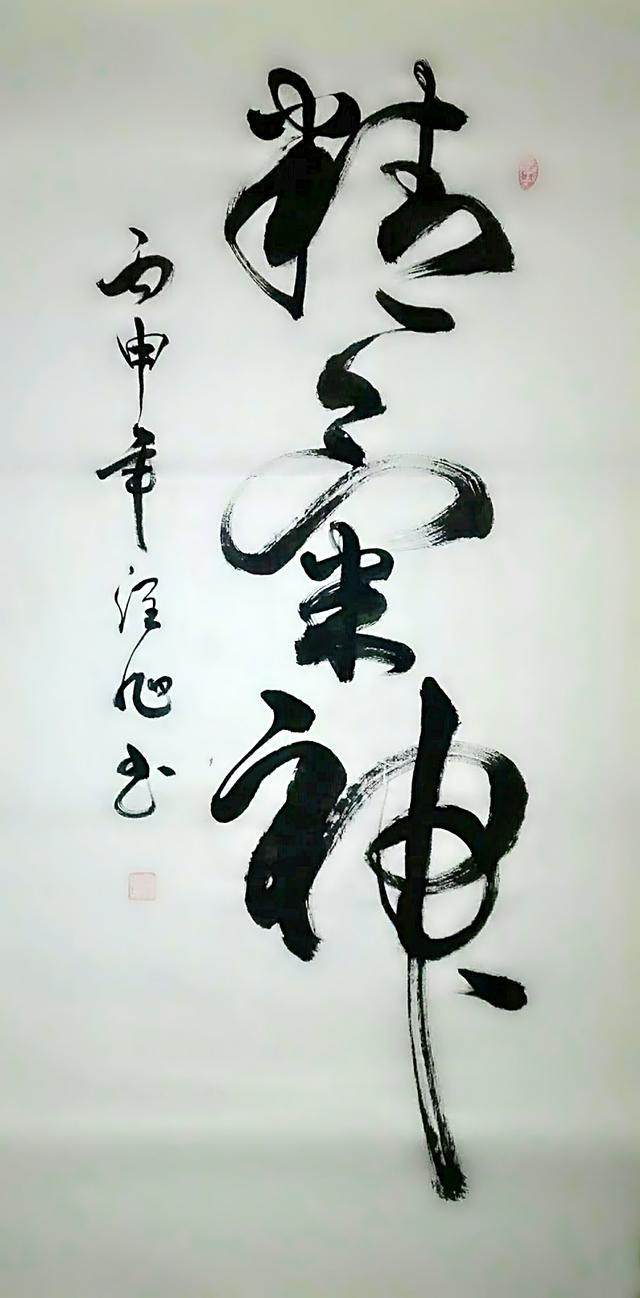 精氣神
丙申年 旭书